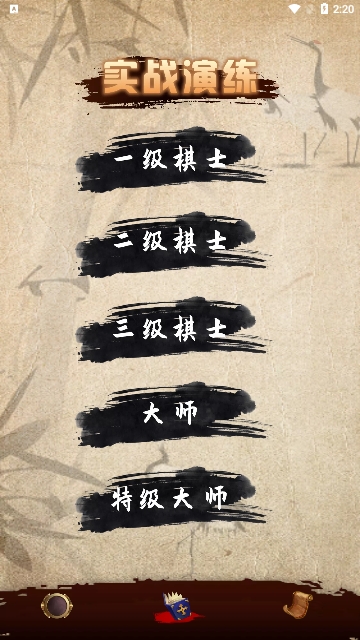 2:20
实战演练
一级棋士
二级棋士
三级棋士
大师
特级大师